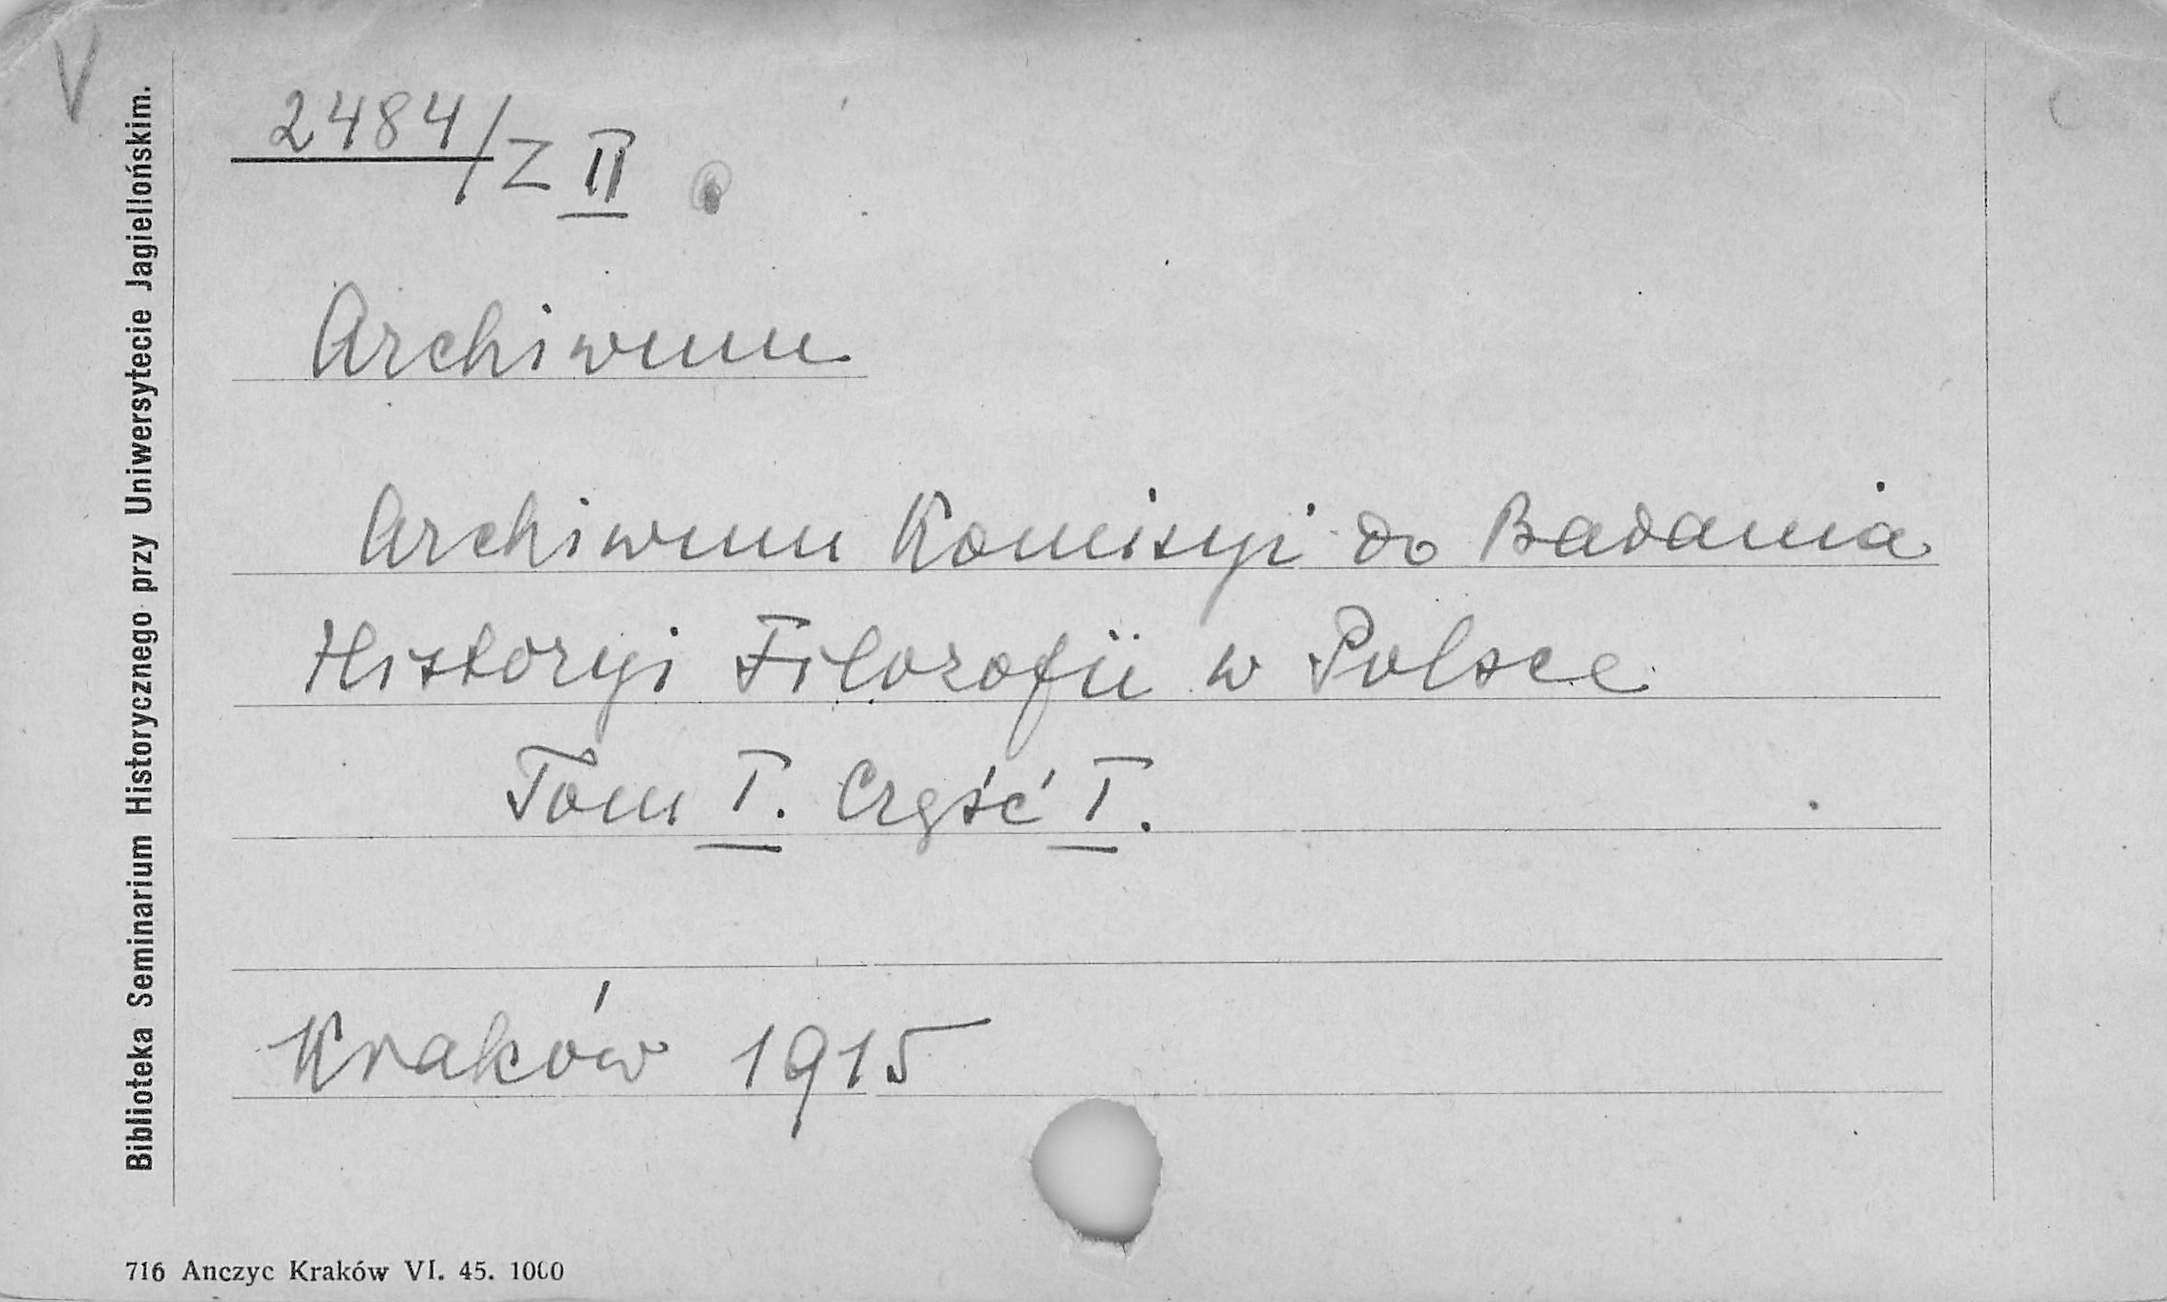 V
2484/Z II
Archiwum
Archiwum Komisyi do Badania
Historyi Filozofii w Polsce
Tom I. Część I.
Kraków 1915
Biblioteka Seminarium Historycznego przy Uniwersytecie Jagiellońskim.
716 Anczyc Kraków VI. 45. 1000